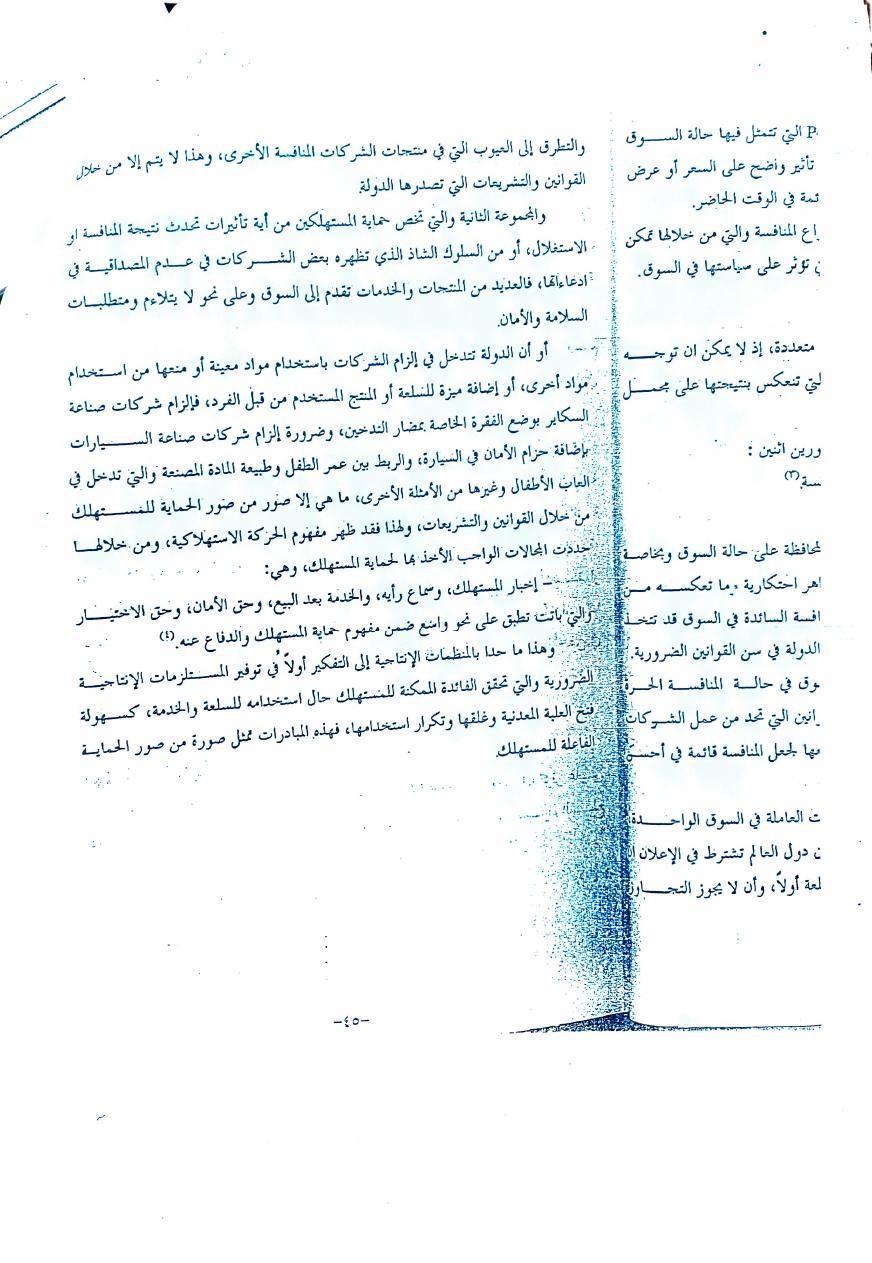 P. التي تتمثل فيها حالة الســوق
تأثير واضح على السعر أو عرض
ئمة في الوقت الحاضر.
اع المنافسة والتي من خلالها تمكن
ن تؤثر على سياستها في السوق.
متعددة، إذ لا يمكن ان توجــــه
لتي تنعكس بنتيجتها على مجمــل
ورين اثنين :
سة.(٣)
لمحافظة على حالة السوق وبخاصـة
اهر احتكارية وما تعكســه مــن
افسة السائدة في السوق قد تتخـذ
الدولة في سن القوانين الضرورية.
وق في حالــة المنافســة الحــرة
انين التي تحد من عمل الشــركات
ها لجعل المنافسة قائمة في أحسن
ت العاملة في السوق الواحــدة
ن دول العالم تشترط في الإعلان
لعة أولاً، وأن لا يجوز التجــاوز
والتطرق إلى العيوب التي في منتجات الشركات المنافسة الأخرى، وهذا لا يتم إلا من خلال
القوانين والتشريعات التي تصدرها الدولة.
والمجموعة الثانية والتي تخص حماية المستهلكين من أية تأثيرات تحدث نتيجة المنافسة او
الاستغلال، أو من السلوك الشاذ الذي تظهره بعض الشــركات في عــدم المصداقيــة في
ادعاءاتها، فالعديد من المنتجات والخدمات تقدم إلى السوق وعلى نحو لا يتلاءم ومتطلبــات
السلامة والأمان.
أو أن الدولة تتدخل في إلزام الشركات باستخدام مواد معينة أو منعها من استــخدام
مواد أخرى، أو إضافة ميزة للسلعة أو المنتج المستخدم من قبل الفرد، فإلزام شركات صناعة
السكاير بوضع الفقرة الخاصة بمضار التدخين، وضرورة إلزام شركات صناعة الســـيارات
بإضافة حزام الأمان في السيارة، والربط بين عمر الطفل وطبيعة المادة المصنعة والتي تدخل في
العاب الأطفال وغيرها من الأمثلة الأخرى، ما هي إلا صور من صور الحماية للمســـتهلك
من خلال القوانين والتشريعات، ولهذا فقد ظهر مفهوم الحركة الاستهلاكية، ومن خلالهــا
حددت المجالات الواجب الأخذ بها لحماية المستهلك، وهي:
– إخبار المستهلك، وسماع رأيه، والخدمة بعد البيع، وحق الأمان، وحق الاختيــار
والتي باتت تطبق على نحو واسع ضمن مفهوم حماية المستهلك والدفاع عنه.(٤)
وهذا ما حدا بالمنظمات الإنتاجية إلى التفكير أولاً في توفير المســتلزمات الإنتاجيــة
الضرورية والتي تحقق الفائدة الممكنة للمستهلك حال استخدامه للسلعة والخدمة، كســهولة
فتح العلبة المعدنية وغلقها وتكرار استخدامها، فهذه المبادرات تمثل صورة من صور الحمايــة
الفاعلة للمستهلك.
-٤٥-